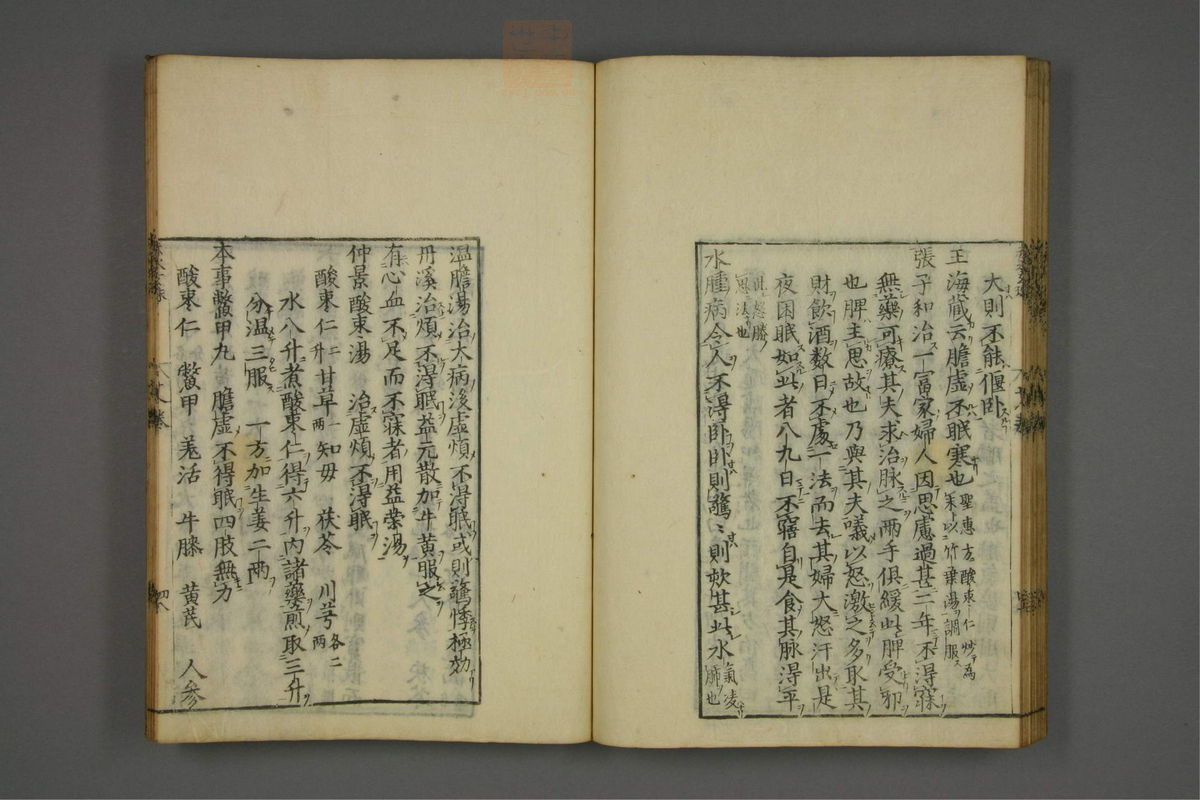 大則不能偃卧
王海藏云膽虚不眠寒也聖惠方酸棗仁炒為末以竹葉湯調服
張子和治一冨家婦人因思慮過甚二年不得寐
無藥可療其夫求治脉之兩手俱緩此脾受邪
也脾主思故也乃與其夫議以怒激之多取其
財飲酒数日不處一法而去其婦大怒汗出是
夜困眠如此者八九日不寤自是食其脉得平
此怒勝思法也
水腫病令人不得卧卧則驚〻則欬甚此水氣凌肺也
温膽湯治大病後虚煩不得眠或則驚悸極効
丹溪治煩不得眠益元散加牛黄服之
有心血不足而不寐者用益榮湯
仲景酸棗湯　治虚煩不得眠
酸棗仁二升甘草一兩知母　茯苓　川芎各二兩
水八升煮酸棗仁得六升内諸藥煎取三升
分温三服　一方加生姜二兩
本事鱉甲丸　膽虚不得眠四肢無力
酸棗仁　鱉甲　羌活　牛膝　黄芪　人參